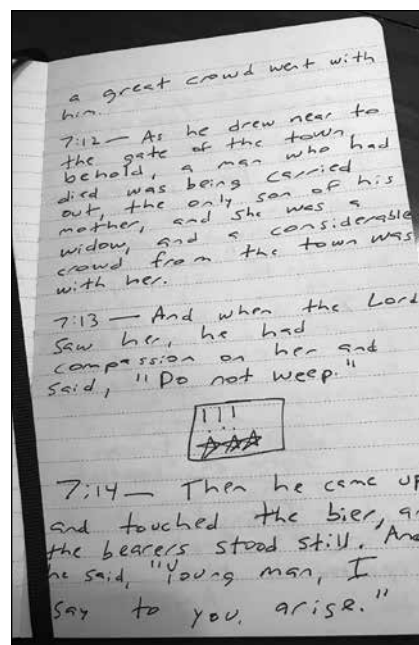 a great crowd went with
him.
7:12 — As he drew near to
the gate of the town,
behold, a man who had
died was being carried
out, the only son of his
mother, and she was a
widow, and a considerable
crowd from the town was
with her.
7:13 — And when the Lord
saw her, he had
compassion on her and
said, "Do not weep."
!!!
7:14 — Then he came up
and touched the bier, an
the bearers stood still. And
he said, "Young man, I
say to you, arise."